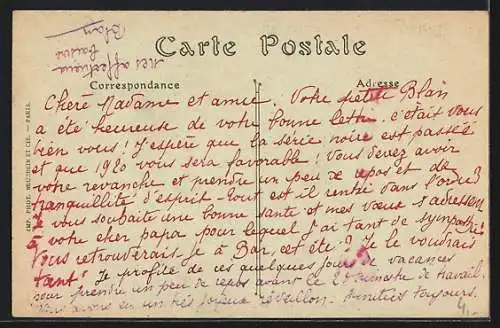 Carte Postale
Mes affectueux
baisers
Blan
Correspondance
Adresse
Chère Madame et amie. Votre petite Blan
a été heureuse de votre bonne lettre. c'était vous
bien vous! J'espère que la série noire est passée
et que 1920 vous sera favorable! Vous devez avoir
votre revanche et prendre un peu de repos et de
tranquillité d'esprit - tout est il rentré dans l'ordre?
Je vous souhaite une bonne santé et mes vœux s'adressent
à votre cher papa pour lequel j'ai tant de sympathie!
Vous retrouverais-je à Bar, cet été? Je le voudrais
tant! Je profite de ces quelques jours de vacances
pour prendre un peu de repos avant le 2e trimestre de travail.
Nous avons eu un très joyeux réveillon. Amitiés toujours.